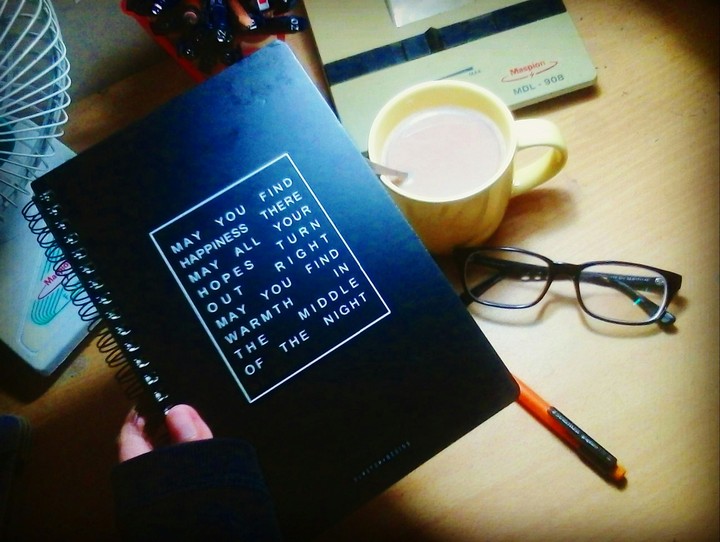 Maspion
MDL - 908
MAY YOU FIND
HAPPINESS THERE
MAY ALL YOUR
HOPES TURN
OUT RIGHT
MAY YOU FIND
WARMTH IN
THE MIDDLE
OF THE NIGHT